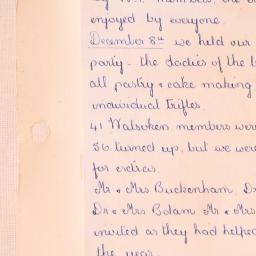 by W.I. members, the
enjoyed by everyone.
December 8th we held our
party - the ladies of the
all pastry & cake making
individual trifles.
41 Walsoken members were
56 turned up, but we were
for extras.
Mr & Mrs Buckenham Dr
Dr & Mrs Bolam Mr & Mrs
invited as they had helped
the year.